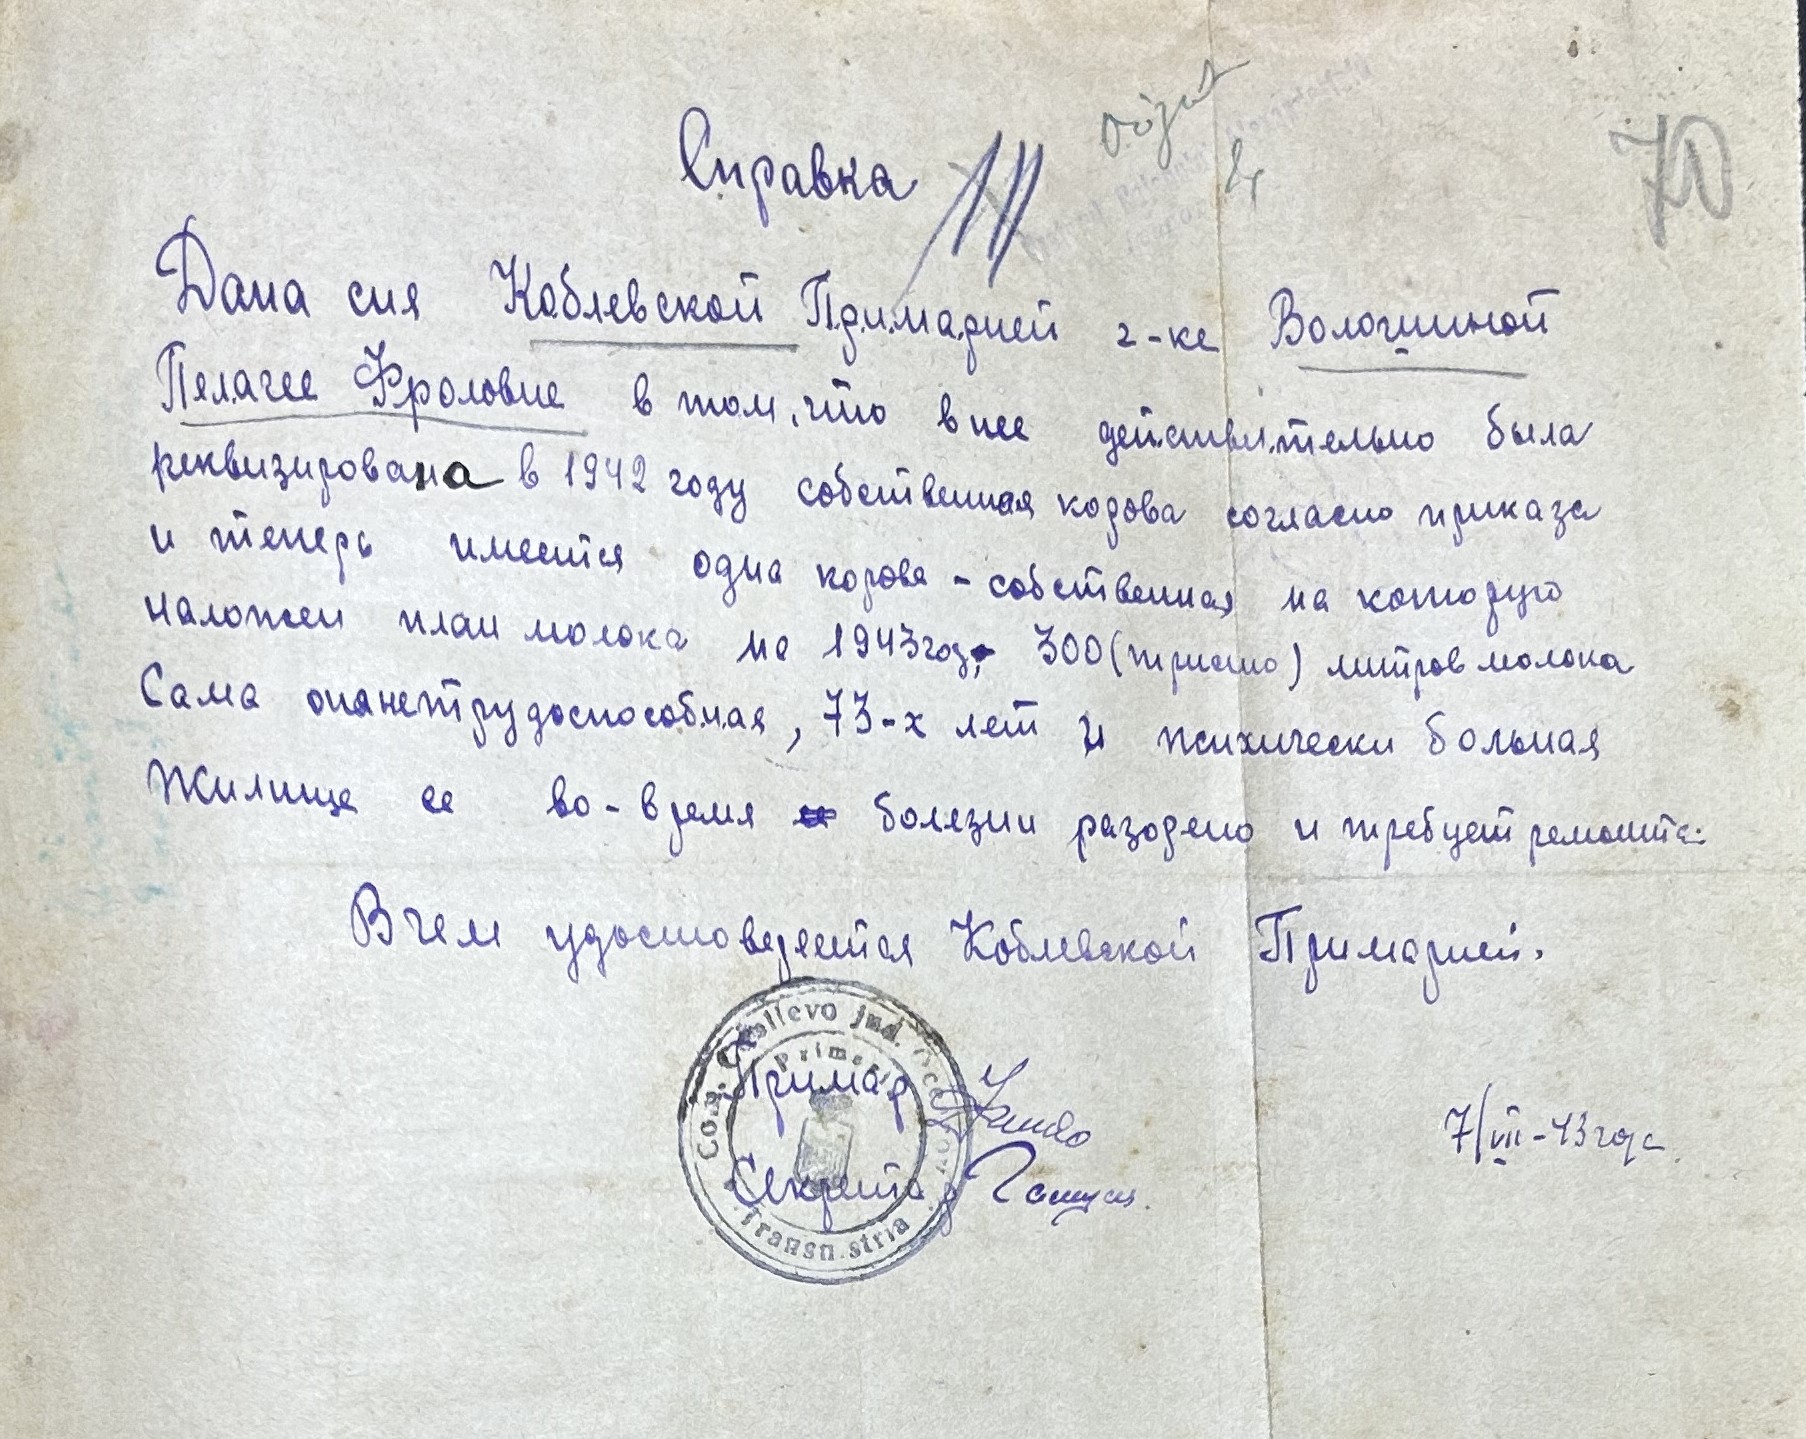 70
Справка
Дана сия Коблевской Примарией г-ке Волошиной
Пелагее Фроловне в том, что в нее действительно была
реквизирована в 1942 году собственная корова согласно приказа
и теперь имеется одна корова - собственная на которую
наложен план молока на 1943 год, 300 (тристо) литров молока
Сама онанетрудоспособная, 73-х лет и психически больная
Жилище ее во-время болезни разорено и требует ремонта.
В чем удостоверяется Коблевской Примарией.
Com. Coblevo jud.
Primar
Transnistria
Примар
Секретар
7/VII-43 года